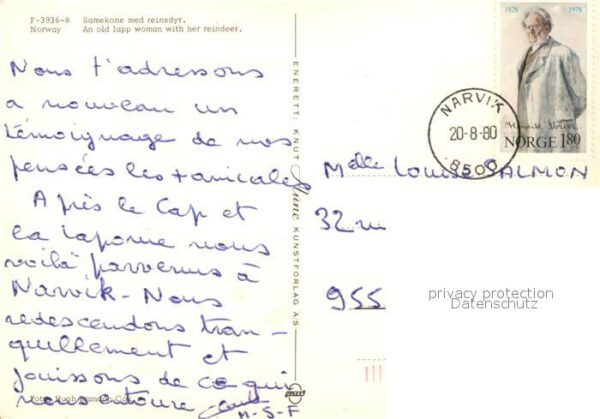 F-3936-8 Samekone med reinsdyr.
Norway An old lapp woman with her reindeer.
Nous t'adressons
a nouveau un
témoignage de nos
pensées les + amicales
Après le Cap et
la Laponie nous
voilà parvenus à
Narvik - Nous
redescendons tran-
quillement et
jouissons de ce qui
nous entoure
M-S-F
Foto: Hugh Brandon Cox
ENERETT: KNUT Aune KUNSTFORLAG A/S
1828 1978
Henrik Ibsen
NORGE 180
NARVIK
20-8-80
8500
Melle Louise SALMON
32 ru
955
privacy protection
Datenschutz